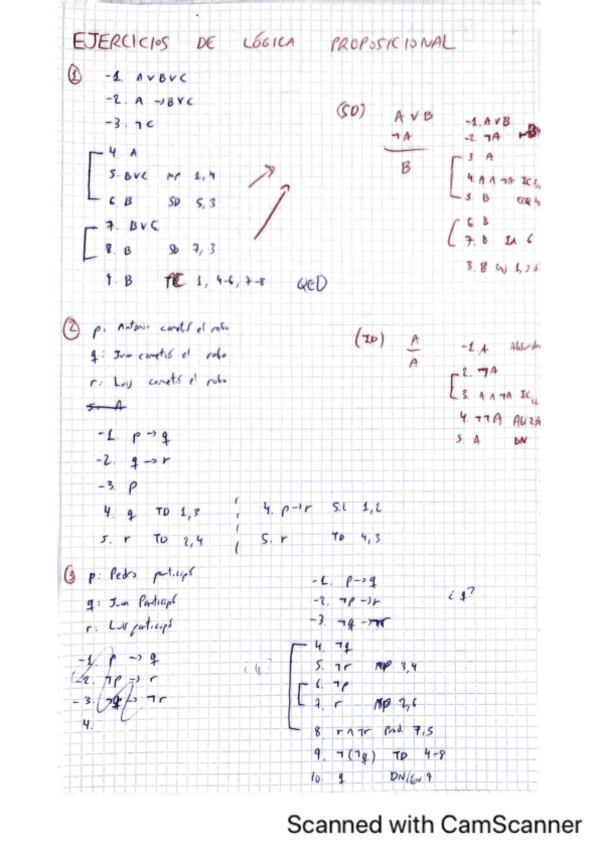 EJERCICIOS DE LÓGICA PROPOSICIONAL
①
-1. A∨B∨C
-2. A→B∨C
-3. ¬C
4. A
5. B∨C MP 1,4
6. B SD 5,3
7. B∨C
8. B SD 7,3
9. B 1, 4-6, 7-8 QED
(SD)
A∨B
¬A
B
-1. A∨B
-2. ¬A
3 A
4. A∧¬A
5. B
6. B
7. B 6
8. B
②
p: Antonio cometió el robo
q: Juan cometió el robo
r: Luis cometió el robo
-1. p→q
-2. q→r
-3. p
4. q TD 1,3
5. r TD 2,4
4. p→r S.L 1,2
5. r TD 4,3
(ID)
A
A
-1. A
2. ¬A
3. A∧¬A
4. ¬¬A
5 A DN
③
p: Pedro participó
q: Juan Participó
r: Luis participó
-1. p→q
-2. ¬p→r
-3. ¬q→¬r
4.
-1. p→q
-2. ¬p→r
-3. ¬q→¬r
¿q?
4. ¬q
5. ¬r MP 3,4
6. ¬p
7. r MP 2,6
8 r∧¬r Prod 7,5
9. ¬(¬q) TD 4-8
10. q
Scanned with CamScanner